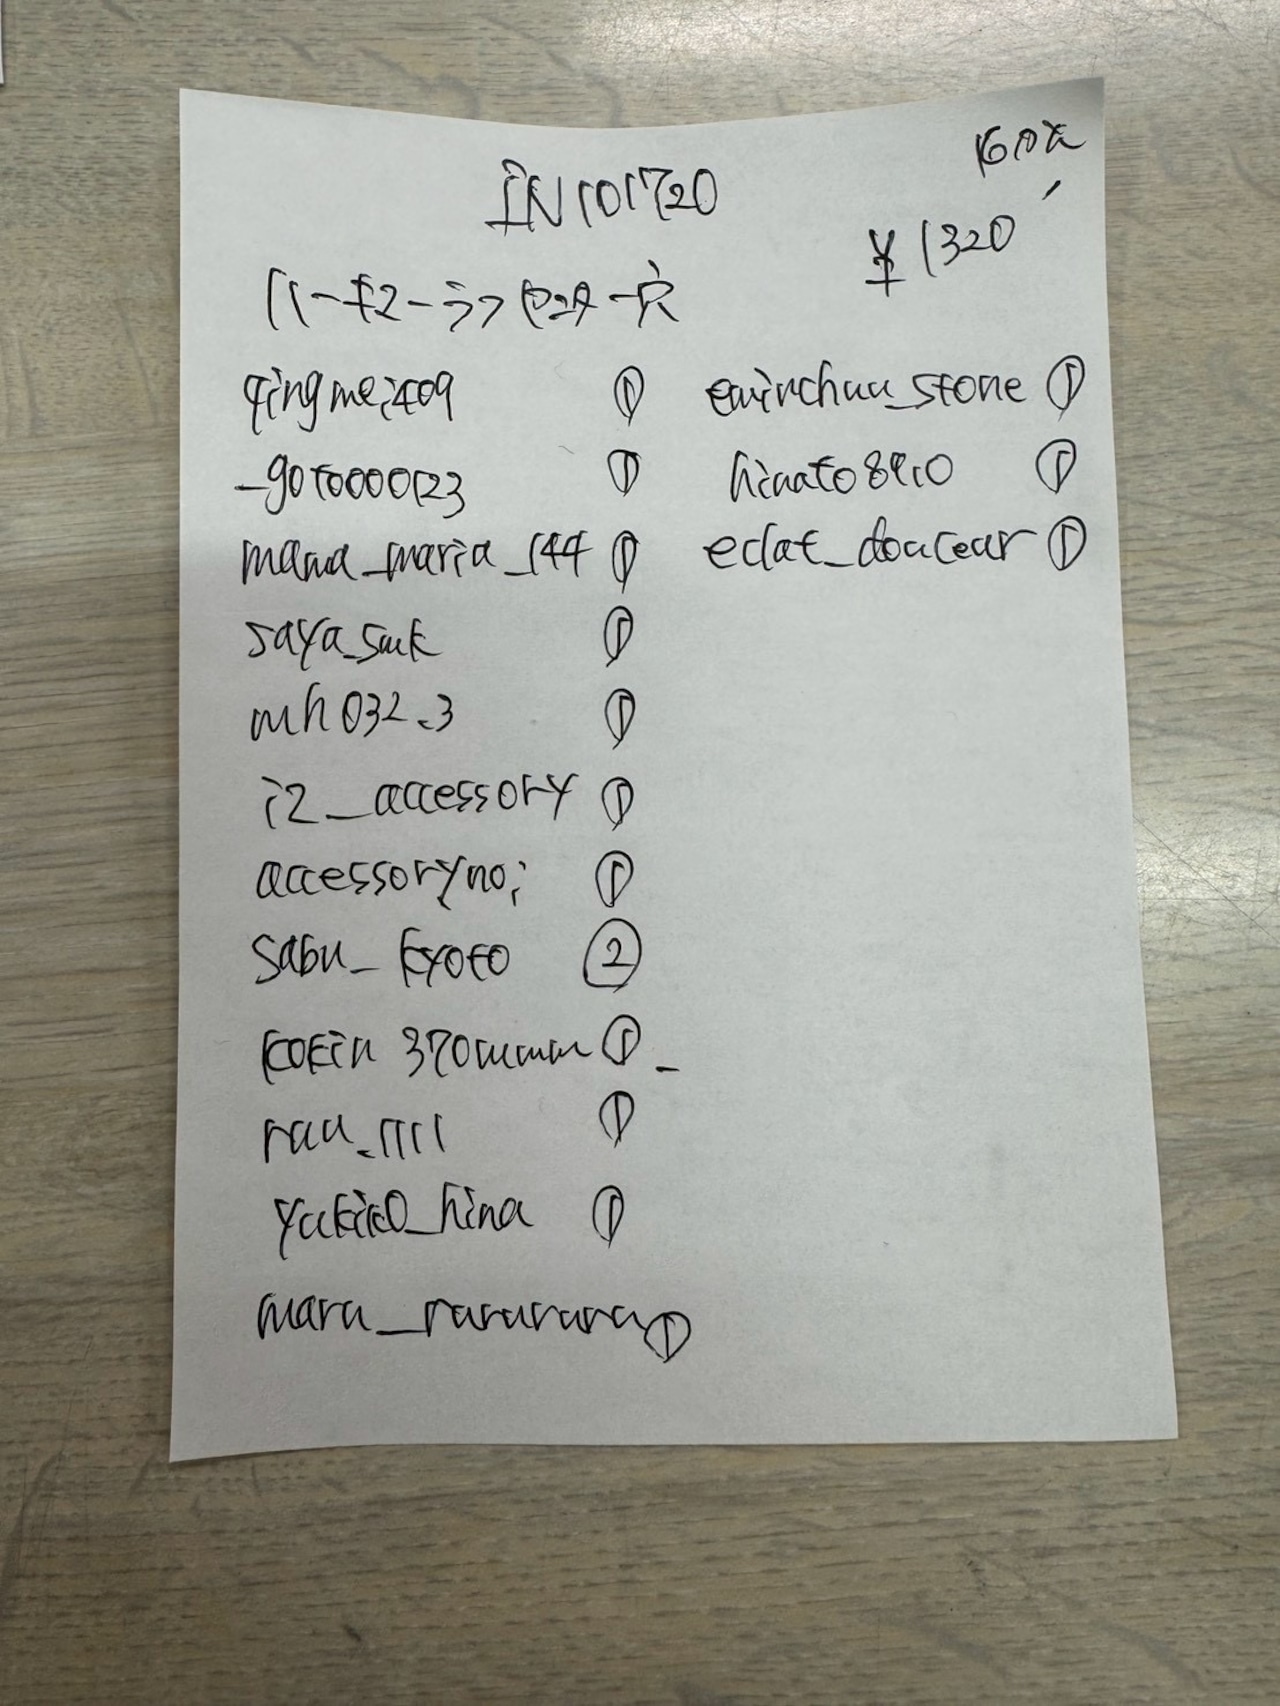 IN101720
16点
¥1320
qingmei409 ①
_goto000123 ①
mana_maria_144 ①
saya_smk ①
mh032.3 ①
i2_accessory ①
accessorynoi ①
sabu_kyoto ②
kokin370mmm ①
rau_1111 ①
yukiko_hina ①
maru_rurururu ①
emirchuu_stone ①
hinato8910 ①
eclat_douceur ①